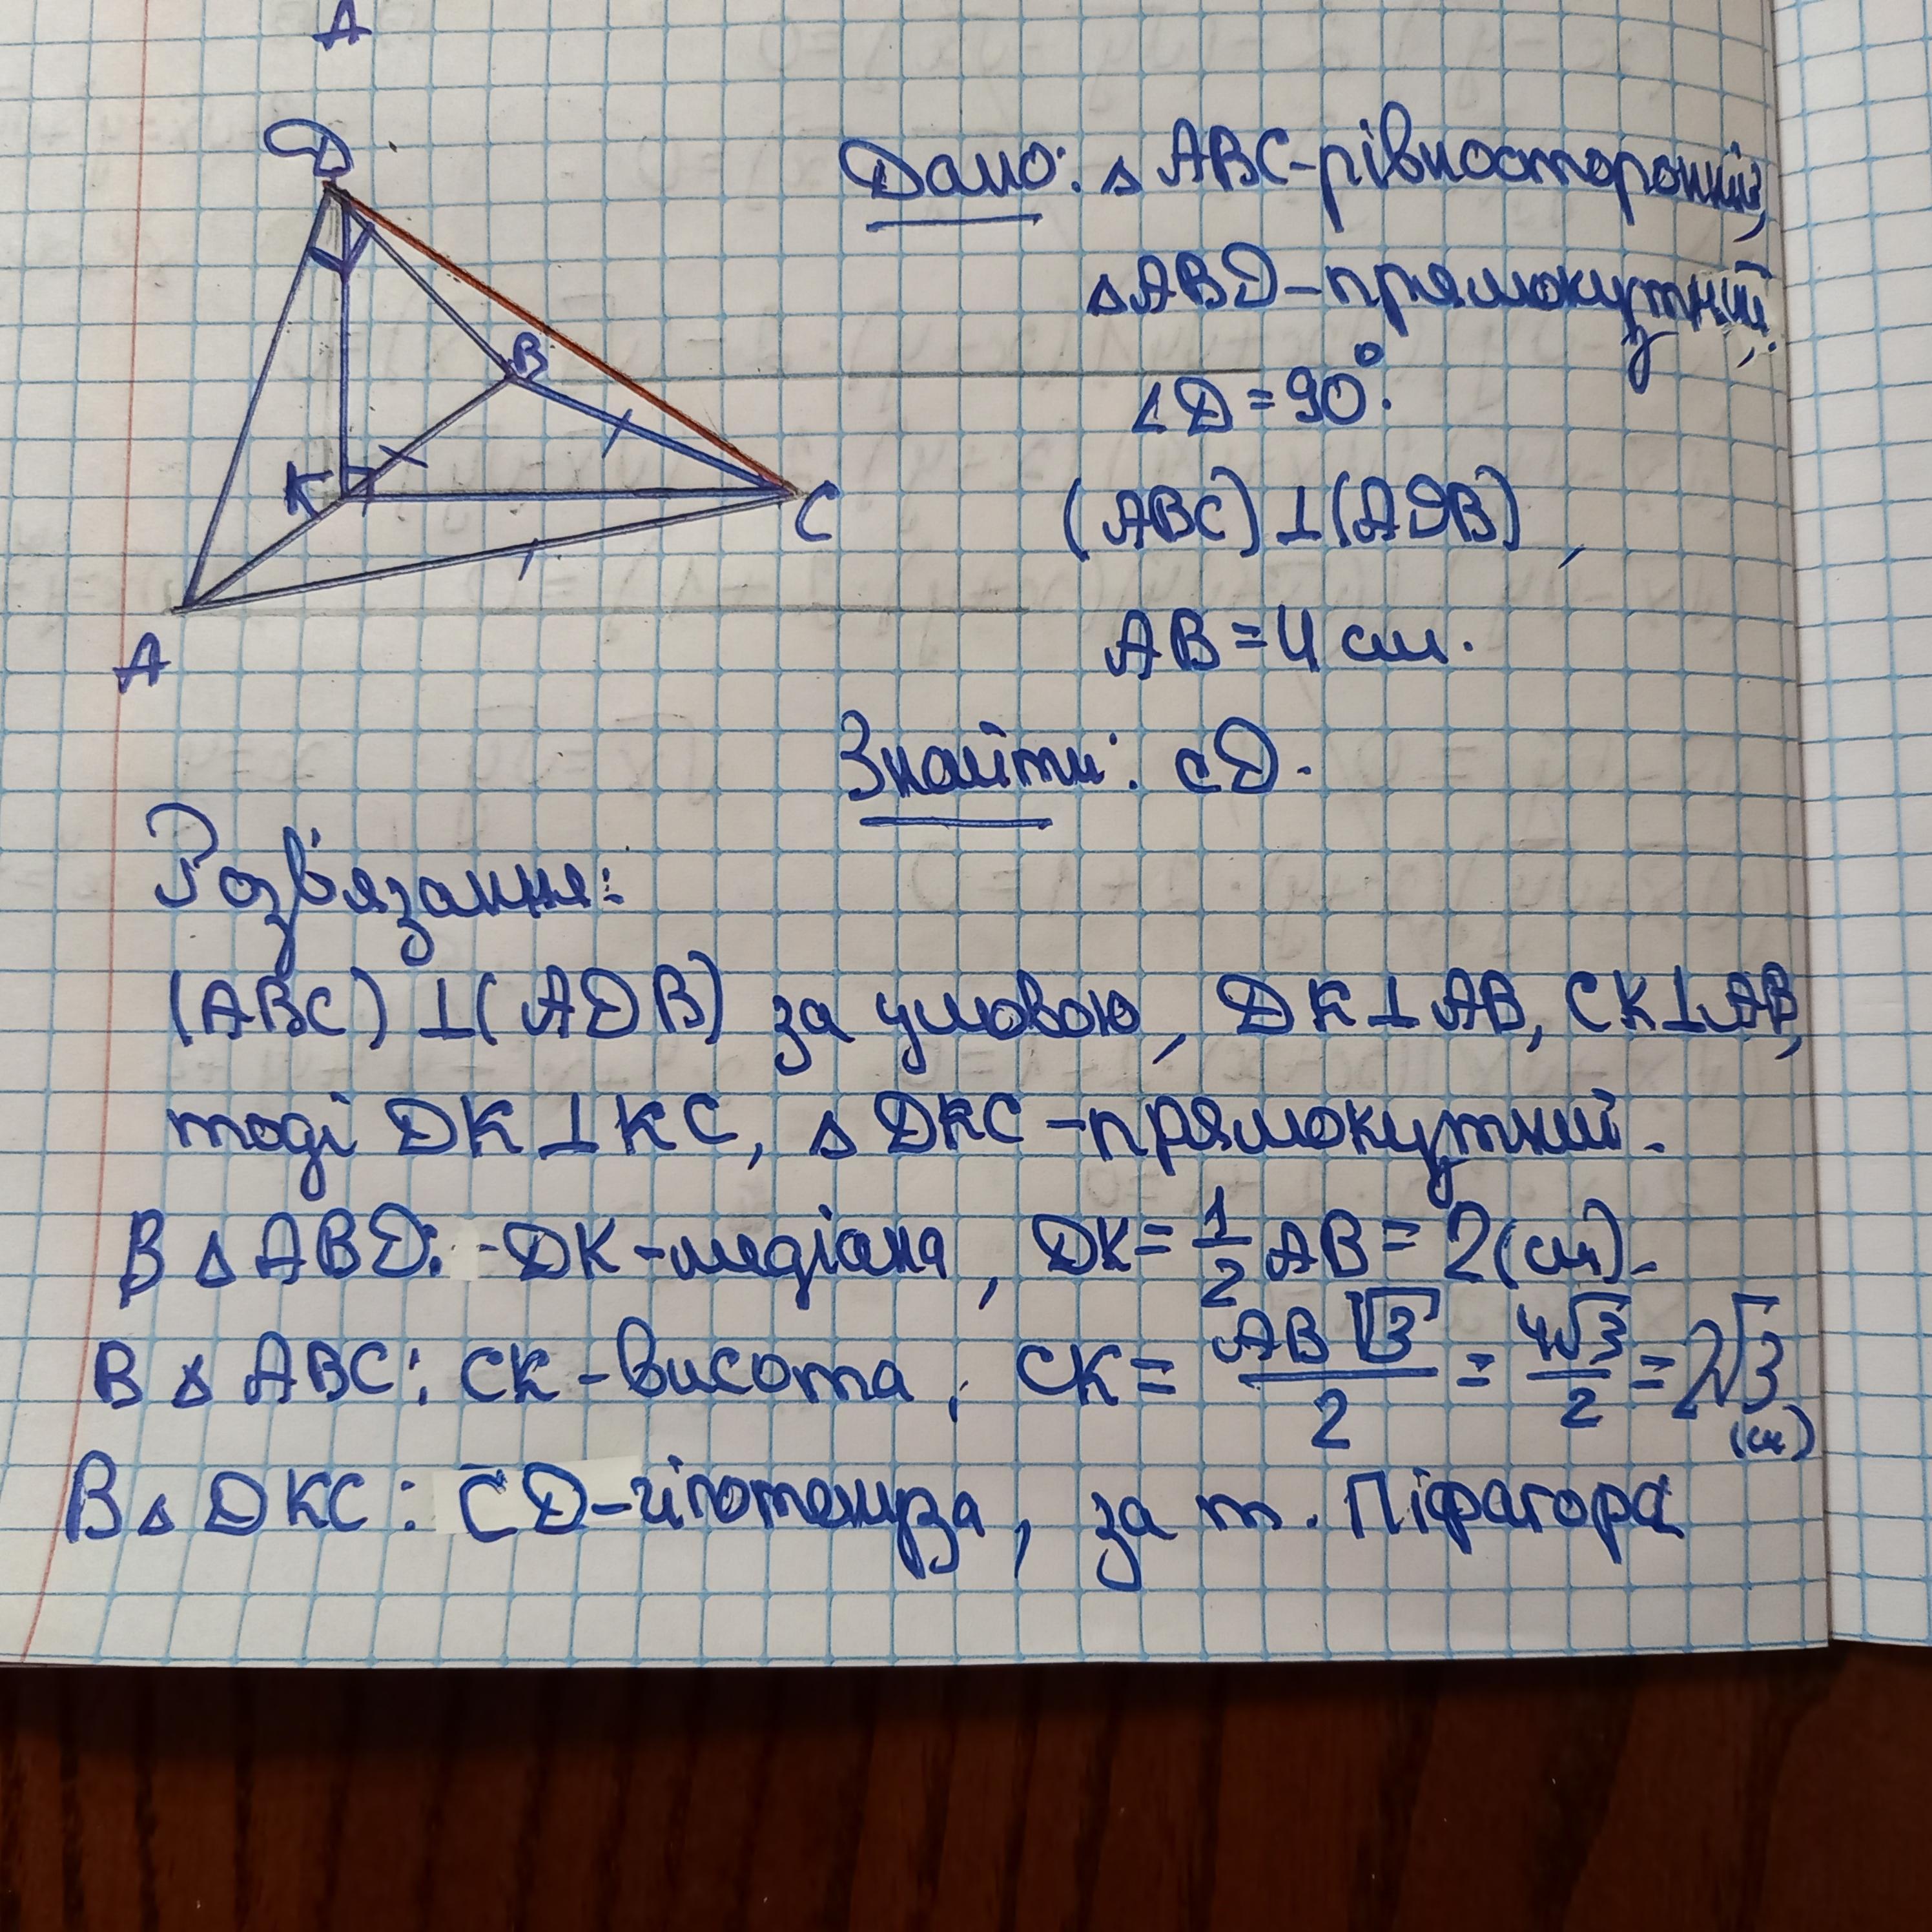 А
D
B
K
C
A
Дано: △ ABC-рівносторонній,
△ABD-прямокутний,
∠D=90°.
(ABC)⊥(ADB),
AB=4 см.
Знайти: CD.
Розв'язання:
(ABC)⊥(ADB) за умовою, DK⊥AB, CK⊥AB,
тоді DK⊥KC, △ DKC-прямокутний.
В △ ABD: -DK-медіана, DK=1/2 AB=2(см).
В △ ABC: CK-висота, CK= AB√3/2 = 4√3/2 =2√3 (см)
В △ DKC: CD-гіпотенуза, за т. Піфагора